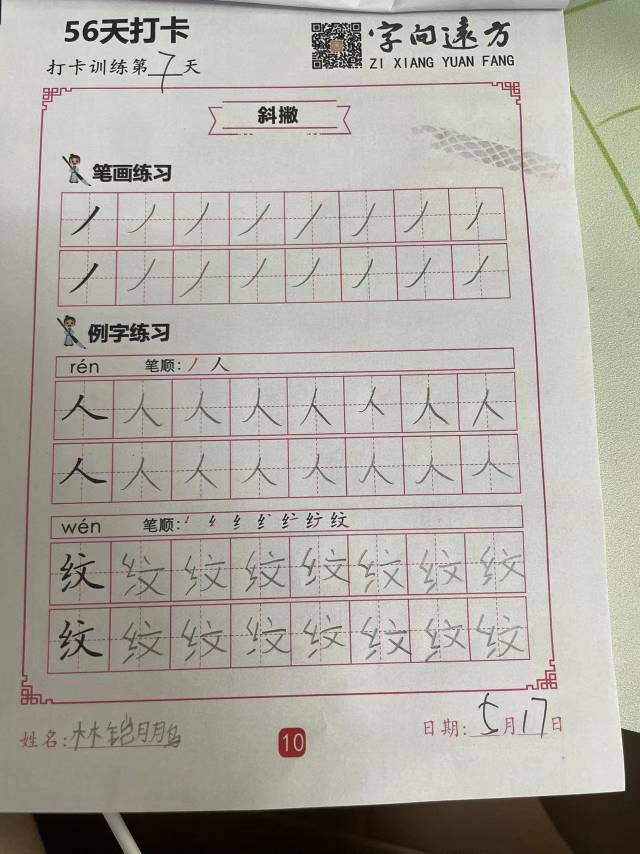 56天打卡
字向远方
打卡训练第7天
ZI XIANG YUAN FANG
斜撇
笔画练习
丿丿丿丿丿丿丿丿
丿丿丿丿丿丿丿丿
例字练习
rén 笔顺: 丿 人
人人人人人人人人
人人人人人人人人
wén 笔顺:
纹纹纹纹纹纹纹纹
纹纹纹纹纹纹纹纹
姓名: 林铠朋
10
日期: 5月17日